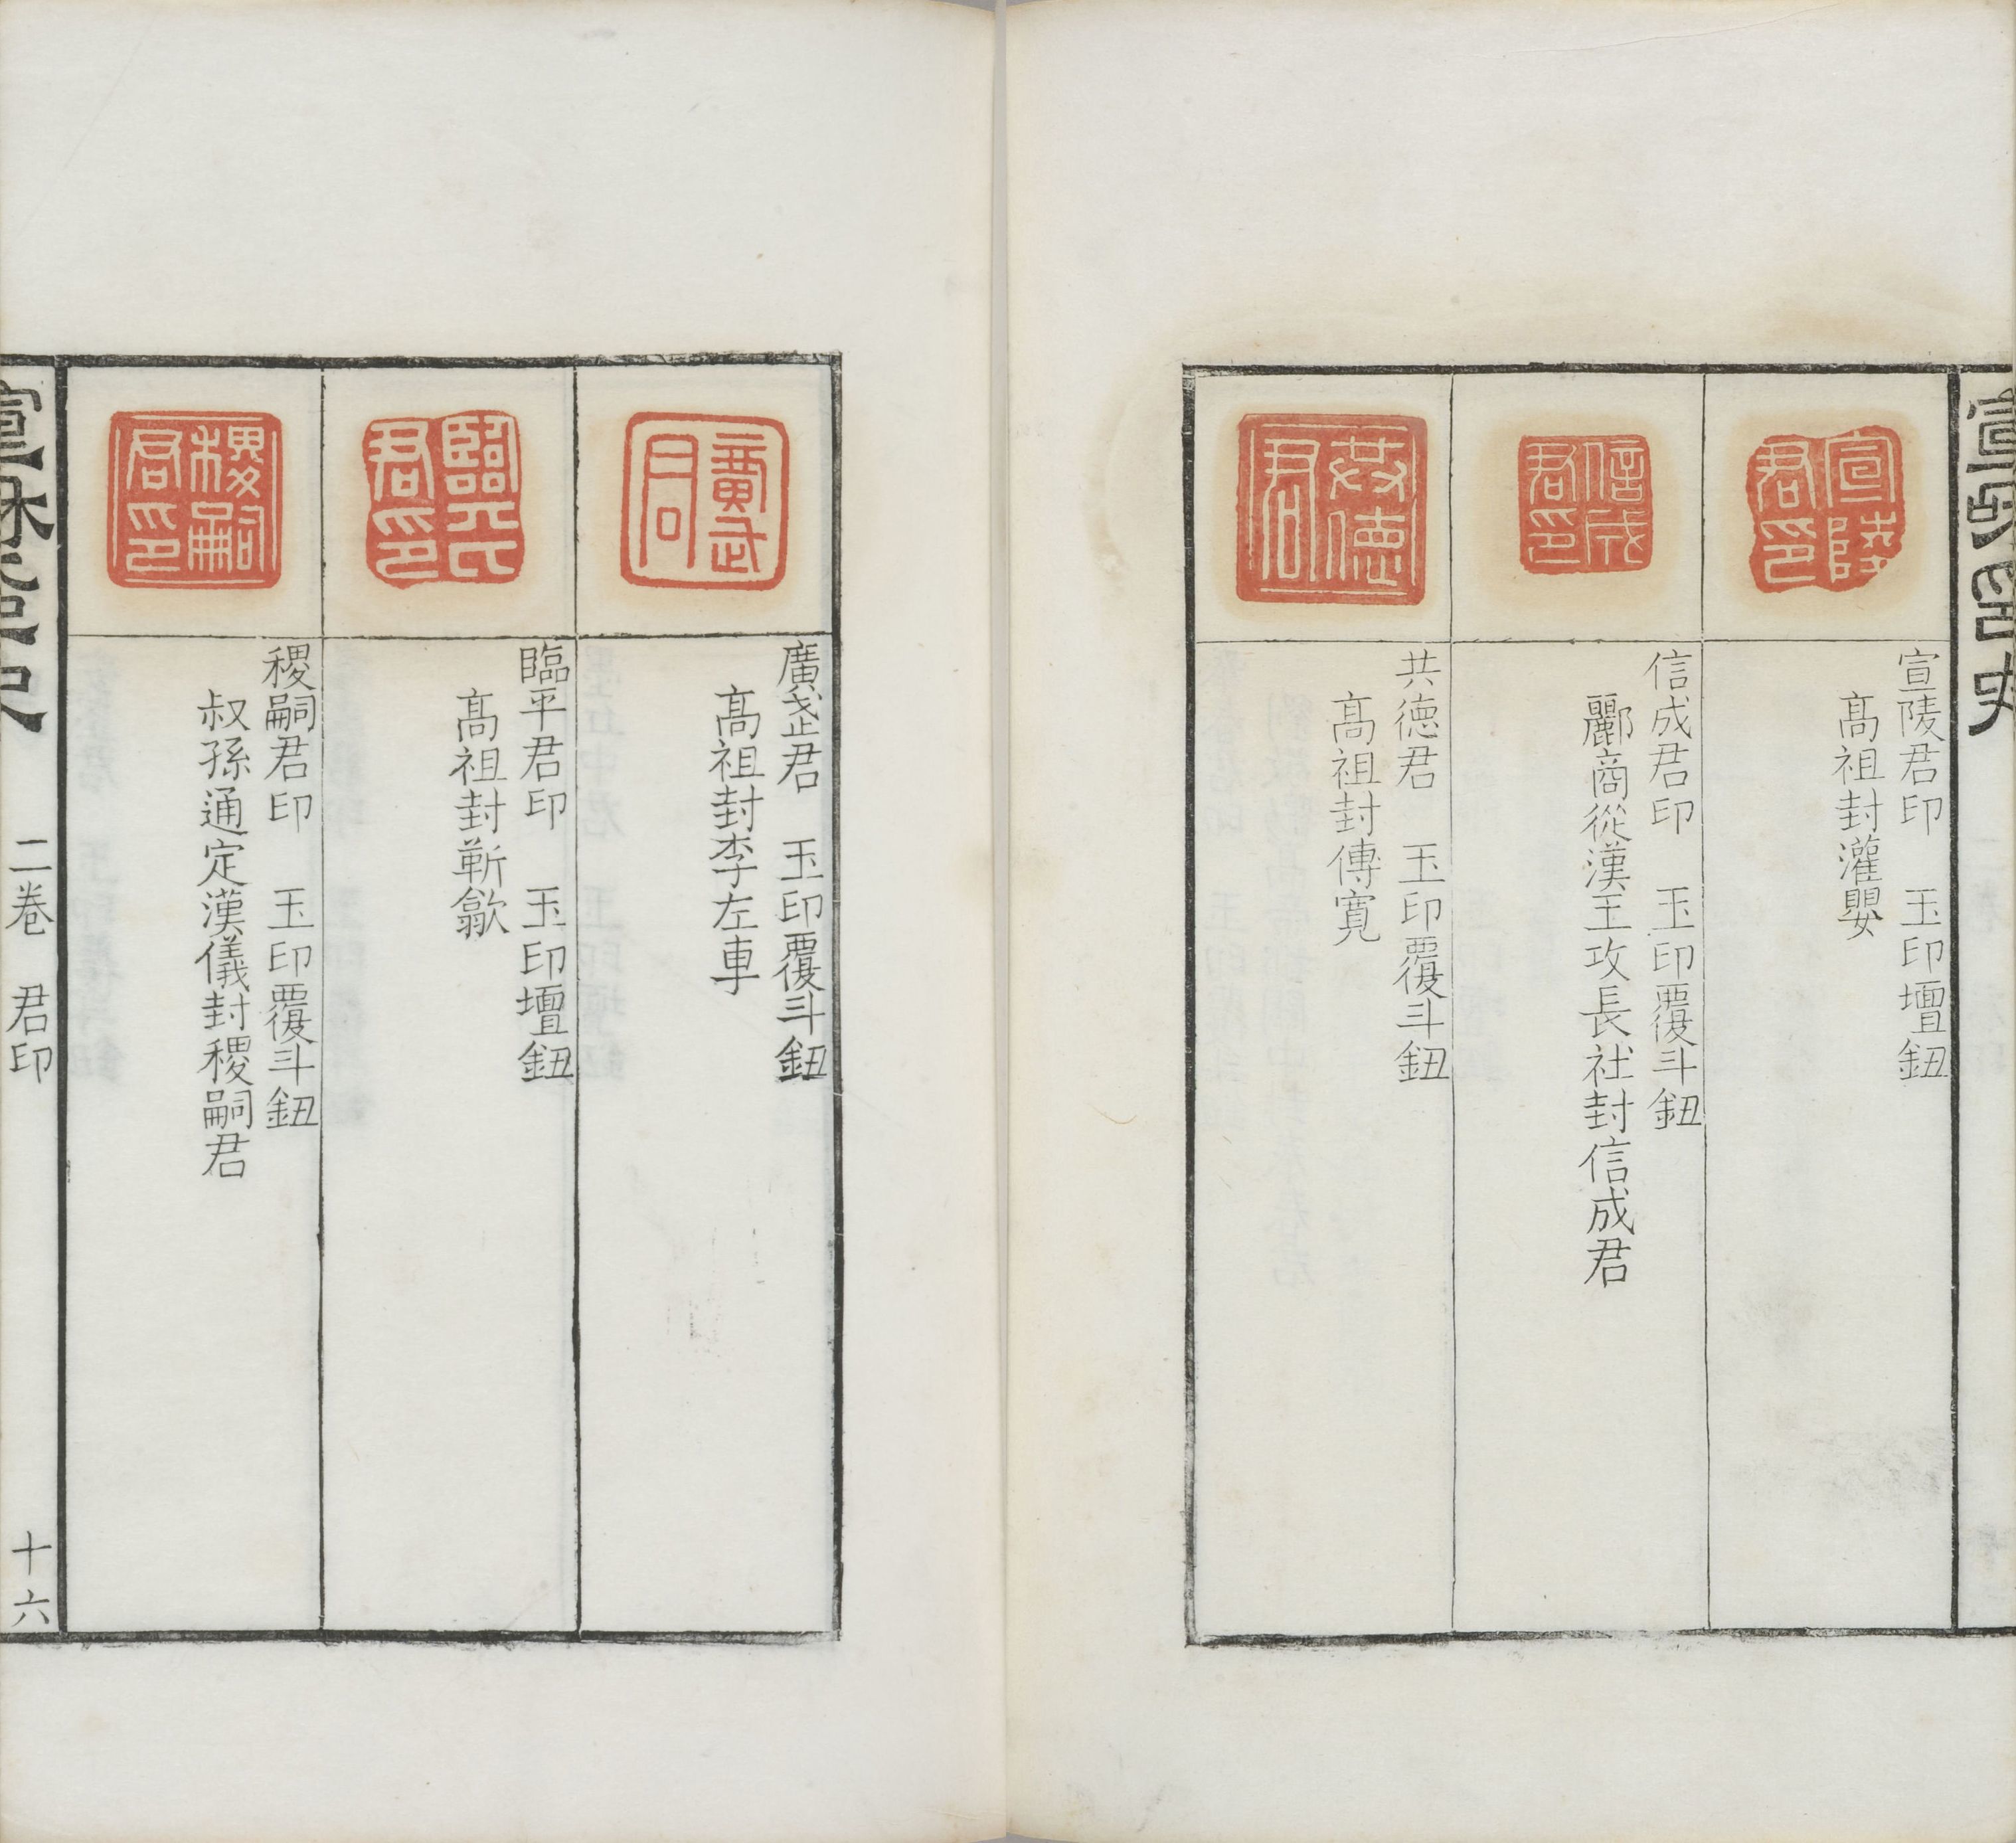 宣陵君印
宣陵君印　玉印壇鈕
髙祖封灌嬰
信成君印
信成君印　玉印覆斗鈕
酈商從漢王攻長社封信成君
共德君　玉印覆斗鈕
髙祖封傅寬
廣武君
廣武君　玉印覆斗鈕
髙祖封李左車
臨平君印
臨平君印　玉印壇鈕
髙祖封靳歙
稷嗣君印
稷嗣君印　玉印覆斗鈕
叔孫通定漢儀封稷嗣君
二卷　君印
十六